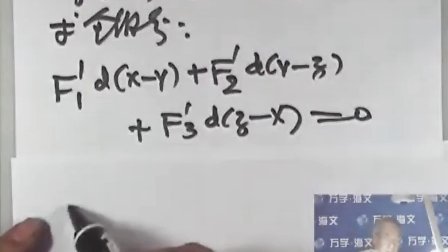 求全微分:
F₁' d(x-y) + F₂' d(y-z)
+ F₃' d(z-x) = 0
万学·海文
万学·海文
海文
万学·海文